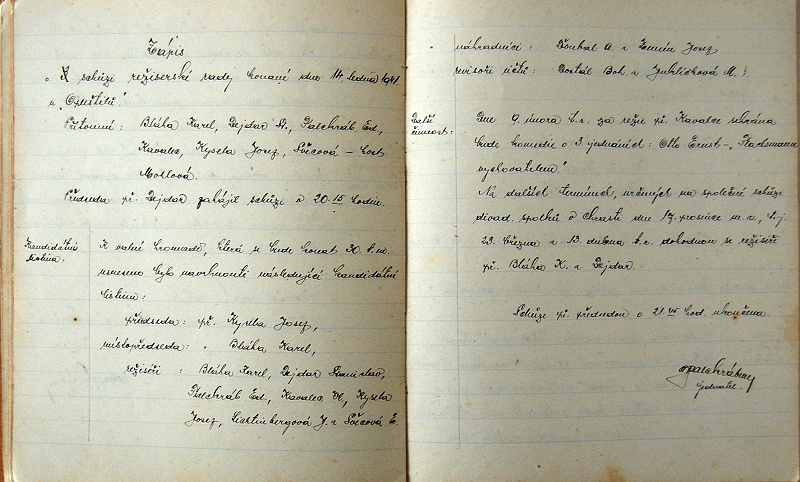 Zápis
o schůzi režiserské rady konané dne 14. ledna 1941
u
Přítomni: Bláha Karel, Dejdar St., Palchráb Ed.,
Kavalec, Kyselá Josef, Švecová – host
Moslová.
Předseda př. Dejdar zahájil schůzi o 20.15 hodin.
Kandidátní
listina:
K valné hromadě, která se bude konat 30. t. m.
usneseno bylo navrhnouti následující kandidátní
listinu:
předseda: př. Kyselá Josef,
místopředseda: " Bláha Karel,
režiséři: Bláha Karel, Dejdar Stanislav,
Palchráb Ed., Kavalec Vl., Kyselá
Josef, Lichtenbergová J. a Švecová E.
náhradníci: Doubal A. a Josef
revisoři účtů: Dostál Boh. a Juklíčková M.
Další
činnost:
Dne 9. února t. r. za režie př. Kavalce sehrána
bude komedie o 3 jednáních: Otto Ernst – "Flachsmann
vychovatelem"
Na dalších termínech, určených na společné schůzi
divad. spolků v Chrasti dne 17. prosince m. r., t. j.
23. března a 13. dubna t. r. dohodnou se režiséři
př. Bláha K. a Dejdar.
Schůze př. předsedou o 21.45 hod. ukončena.
Palchráb
jednatel.